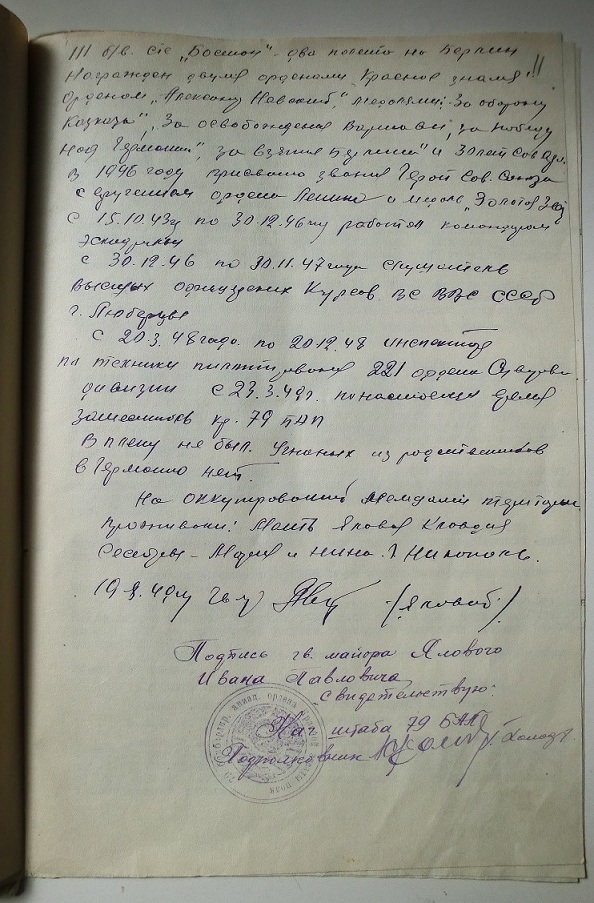 111 б/в. с/с „Бостон" два полета на Берлин
Награжден двумя орденами „Красное знамя"
Орденом „Александр Невский", медалями: За оборону
Кавказа", „За освобождения Варшавы", за победу
над Германией", за взятия Берлина" и 30 лет Сов
В 1946 году присвоено звания Герой Сов. Союза
с вручением ордена Ленина и медаль „Золотая Зв
С 15.10.43г по 30.12.46г работал командиром
эскадрильи
с 30.12.46 по 30.11.47 года слушатель
высших офицерских Курсов ВС ВВС СССР
г. Люберцы
С 20.3.48 года по 20.12.48 инспектор
по техники пилотирования 221 ордена
дивизии с 23.3.49г. по настоящее время
заместитель кр. 79 БАП
В плену не был. Угнаных из родственников
в Германию нет.
На оккупированной Немцами территории
проживали: Мать Яловая Клавдия
Сестры – Мария и Нина. г. Никополь.
(Яловой)
Подпись гв. майора Ялового
Ивана Павловича
свидетельствую:
Нач штаба 79 БАП
Подполковник